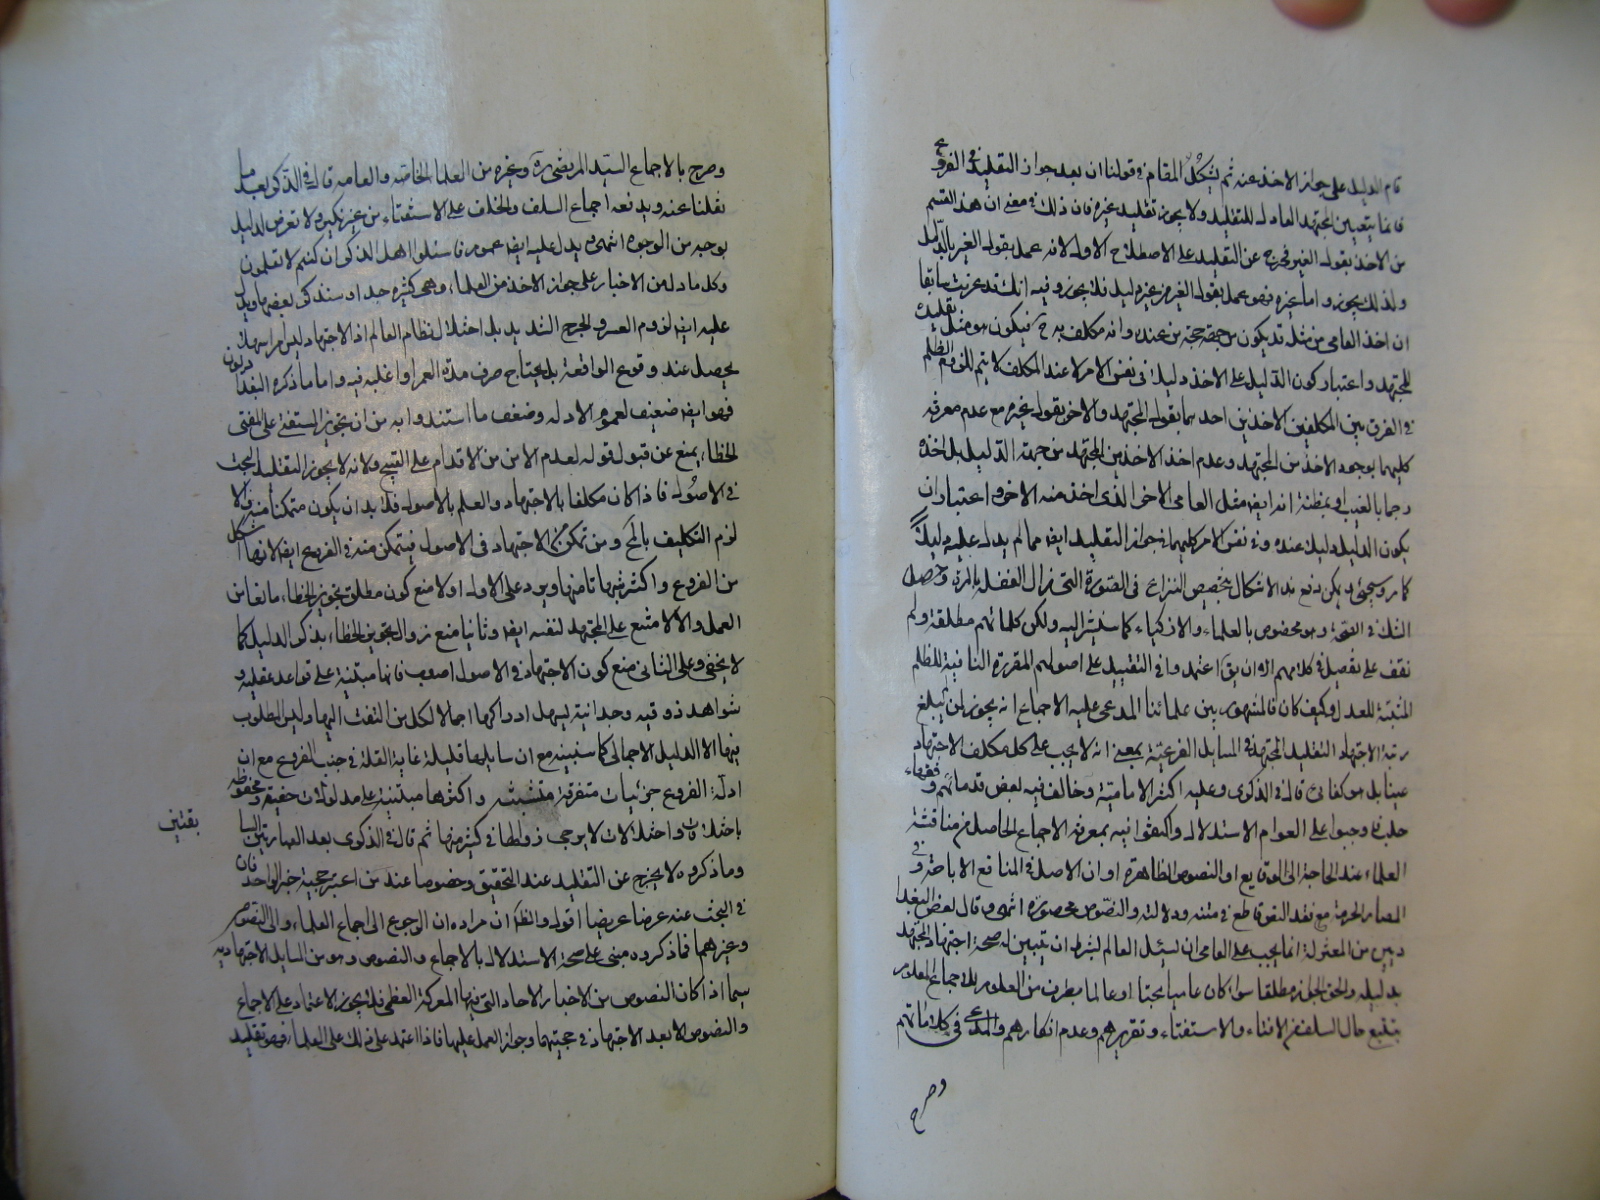 قام الدليل على جواز الاخذ عنه ثم يشكل المقام في قولنا ان بعد جواز التقليد في الفروع
فانما يتعين المجتهد العادل للتقليد ولا يجوز تقليد غيره فان ذلك في معنى ان هذا القسم
من الاخذ بقول الغير فخرج عن التقليد على الاصطلاح الاول لانه عمل بقول الغير بالدليل
ولذلك يجوز واما غيره فهو عمل بقول الغير من غير دليل فلا يجوز وفيه انك قد عرفت سابقا
ان اخذ العامي من مثله قد يكون من جهة حجة من عنده وانه مكلف به ح فيكون هو مثل تقليده
للمجتهد واعتبار كون الدليل على الاخذ دليلا في نفس الامر لا عند المكلف لا يتم للزوم الظلم
في الفرق بين المكلفين الاخذين احدهما بقول المجتهد والاخر بقول غيره مع عدم معرفة
كليهما بوجوه الاخذ من المجتهد وعدم اخذ الاخذ من المجتهد من جهة الدليل بل اخذه
رجما بالغيب او بمظنة انه ايضا مثل العامي الاخر الذي اخذ منه الاخر واعتبار ان
يكون الدليل دليلا عنده وفي نفس الامر كليهما فجواز التقليد ايضا مما لم يدل عليه دليل
كما مر وسيجئ نعم يمكن دفع هذا الاشكال بتخصيص النزاع في الصورة التي زال الغفلة بالمرة وحصل
الشك في الصحة وهو مخصوص بالعلماء والازكياء كما سنشير اليه ولكن كلماتهم مطلقة ولم
نقف على تفصيل في كلامهم الا ان يق اعتمدوا في التقييد على اصولهم المقررة النافية للظلم
المثبتة للعدل وكيف كان فالمشهور بين علمائنا المدعى عليه الاجماع انه يجوز لمن لم يبلغ
رتبة الاجتهاد التقليد للمجتهد في المسايل الفرعية بمعنى انه لا يجب على كل مكلف الاجتهاد
عينا بل هو كفائي قال في الذكرى وعليه اكثر الامامية وخالف فيه بعض قدمائهم وفقهاء
حلب فاوجبوا على العوام الاستدلال واكتفوا فيه بمعرفة الاجماع الحاصل من مناقشة
العلماء عند الحاجة الى الوقايع او النصوص الظاهرة او ان الاصل في المنافع الاباحة وفي
المضار الحرمة مع فقد النص قاطع في متنه ودلالته والنصوص محصورة انتهى وقال بعض البغدا
ديين من المعتزلة انما يجب على العامي ان يسئل العالم بشرط ان يتبين له صحة اجتهاد المجتهد
بدليله والحق الجواز مطلقا سوا كان عاميا بحتا او عالما بطرف من العلوم للاجماع المعلوم
بتتبع حال السلف من الافتاء والاستفتاء وتقريرهم وعدم انكارهم والمدعى في كلماتهم
وصرح
وصرح بالاجماع السيد المرتضى ره وغيره من العلما الخاصه والعامه قال في الذكرى بعد ما
نقلنا عنه ويدفعه اجماع السلف والخلف على الاستفتاء من غير نكير ولا تعرض لدليل
بوجه من الوجوه انتهى ويدل عليه ايضا عموم فاسئلوا اهل الذكر ان كنتم لا تعلمون
وكل ما دل من الاخبار على جواز الاخذ من العلماء وهي كثيرة جدا وسنذكر بعضها ويدل
عليه ايضا لزوم العسر والحرج الشديد بل اختلال نظام العالم اذ الاجتهاد ليس امرا سهلا
يحصل عند وقوع الواقعة بل يحتاج صرف مدة العمر او اغلبه فيه واما ما ذكره البغداديون
فهو ايضا ضعيف لعموم الادلة وضعف ما استندوا به من ان تجويز المستفتي على المفتي
الخطاء يمنع عن قبول قوله لعدم الامن من الاقدام على القبيح ولانه لا يجوز التقليد البحت
في الاصول فاذا كان مكلفا بالاجتهاد والعلم بالاصول فلا بد ان يكون متمكنا منه والا
لزم التكليف بالمح ومن تمكن من الاجتهاد في الاصول فيتمكن منه في الفروع ايضا لانها اشكل
من الفروع واكثر شبهاتا منها ويرد على الاول اولا منع كون مطلق تجويز الخطاء مانعا من
العمل والا لامتنع على المجتهد لنفسه ايضا وثانيا منع زوال تجويز الخطاء بذكر الدليل كما
لا يخفى وعلى الثاني منع كون الاجتهاد في الاصول اصعب فانها مبتنية على قواعد عقلية و
شواهد ذوقيه وجدانية يسهل ادراكها اجمالا لكل من التفت اليها وليس المطلوب
فيها الا الدليل الاجمالي كما سنبينه مع ان مسايلها قليلة غاية القلة في جنب الفروع مع ان
ادلة الفروع جزئيات متفرقة متشتته واكثرها مبتنية على مدلولات خفية ومحفوفة
باختلافات واختلالات لا يرجى زوالها في كثير منها ثم قال في الذكرى بعد العبارتين السا
بقتين
وما ذكروه لا يخرج عن التقليد عند التحقيق وخصوصا عند من اعتبر حجية خبر الواحد فان
في البحث عنه عرضا عريضا اقول والظ ان مراده ان الرجوع الى اجماع العلماء والى النصوص
وغيرهما فما ذكروه مبني على صحة الاستدلال بالاجماع والنصوص وهو من المسايل الاجتهادية
سيما اذا كان النصوص من الاخبار الاحاد التي فيها المعركة العظمى فلا يجوز الاعتماد على الاجماع
والنصوص الا بعد الاجتهاد في حجيتهما وجواز العمل عليها فاذا اعتمد على ذلك على العلماء فهو تقليد